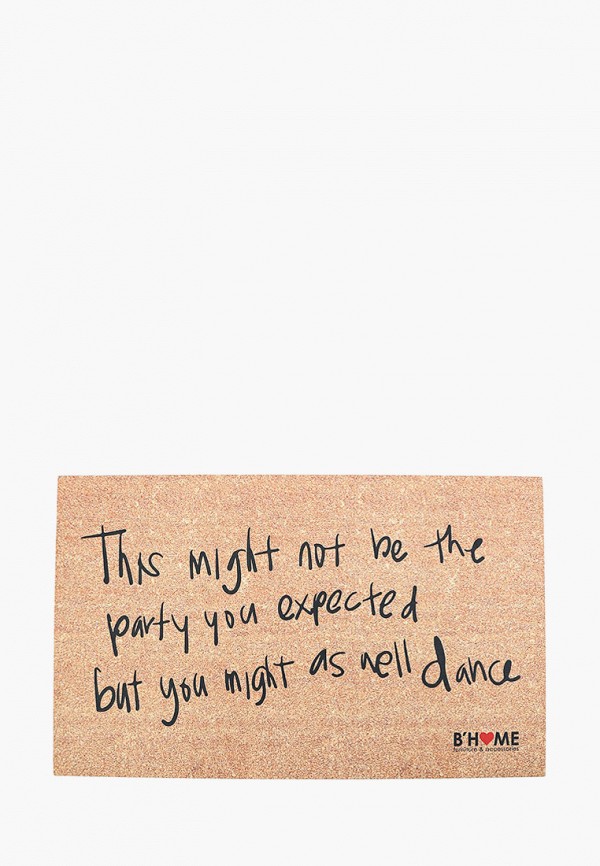 This might not be the
party you expected
but you might as well dance
B'H❤ME
furniture & accessories